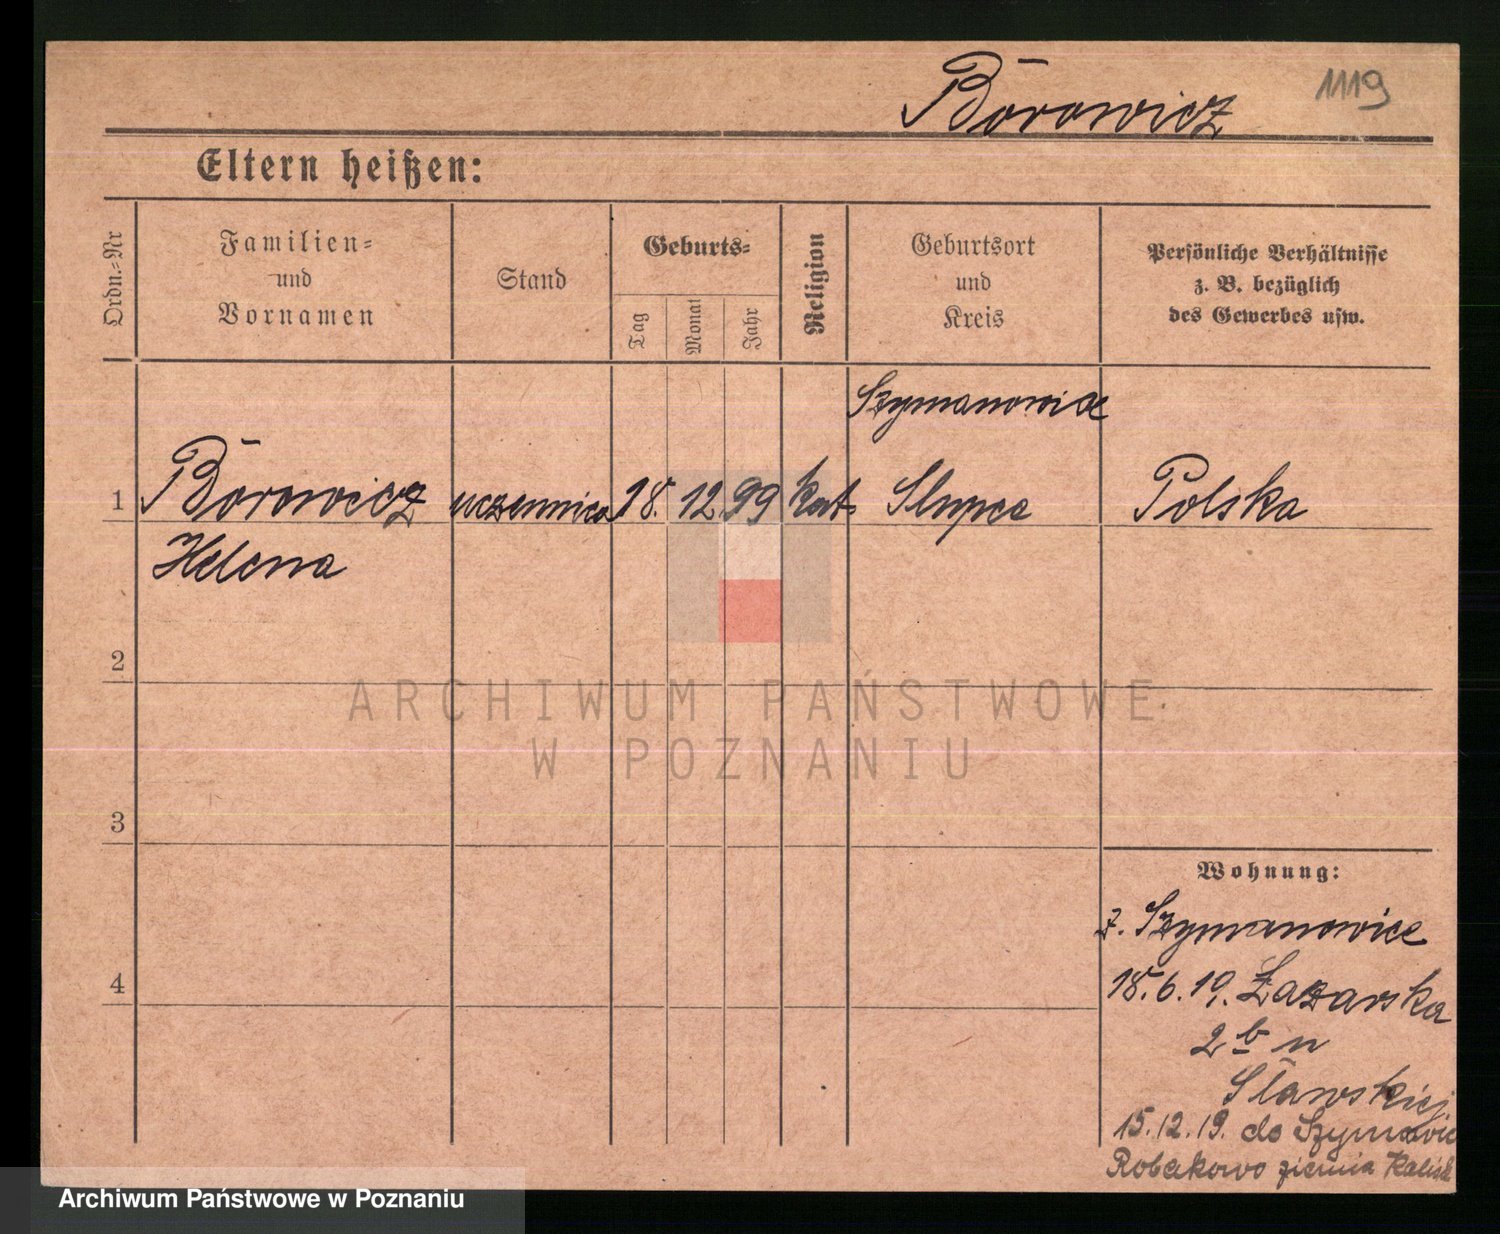 Borowicz 1119
Eltern heißen:
Ordn.=Nr
Familien=
und
Vornamen
Stand
Geburts=
Tag
Monat
Jahr
Religion
Geburtsort
und
Kreis
Persönliche Verhältnisse
z. B. bezüglich
des Gewerbes usw.
Szymanowice
1 Borowicz uczennica 18. 12 99 kat. Slupce Polska
Helena
2
ARCHIWUM PAŃSTWOWE
W POZNANIU
3
Wohnung:
z. Szymanowice
4
18.6.19. Łazarska
2 b u
Sławskiej
15.12.19. do
Robakowo ziemia
Archiwum Państwowe w Poznaniu